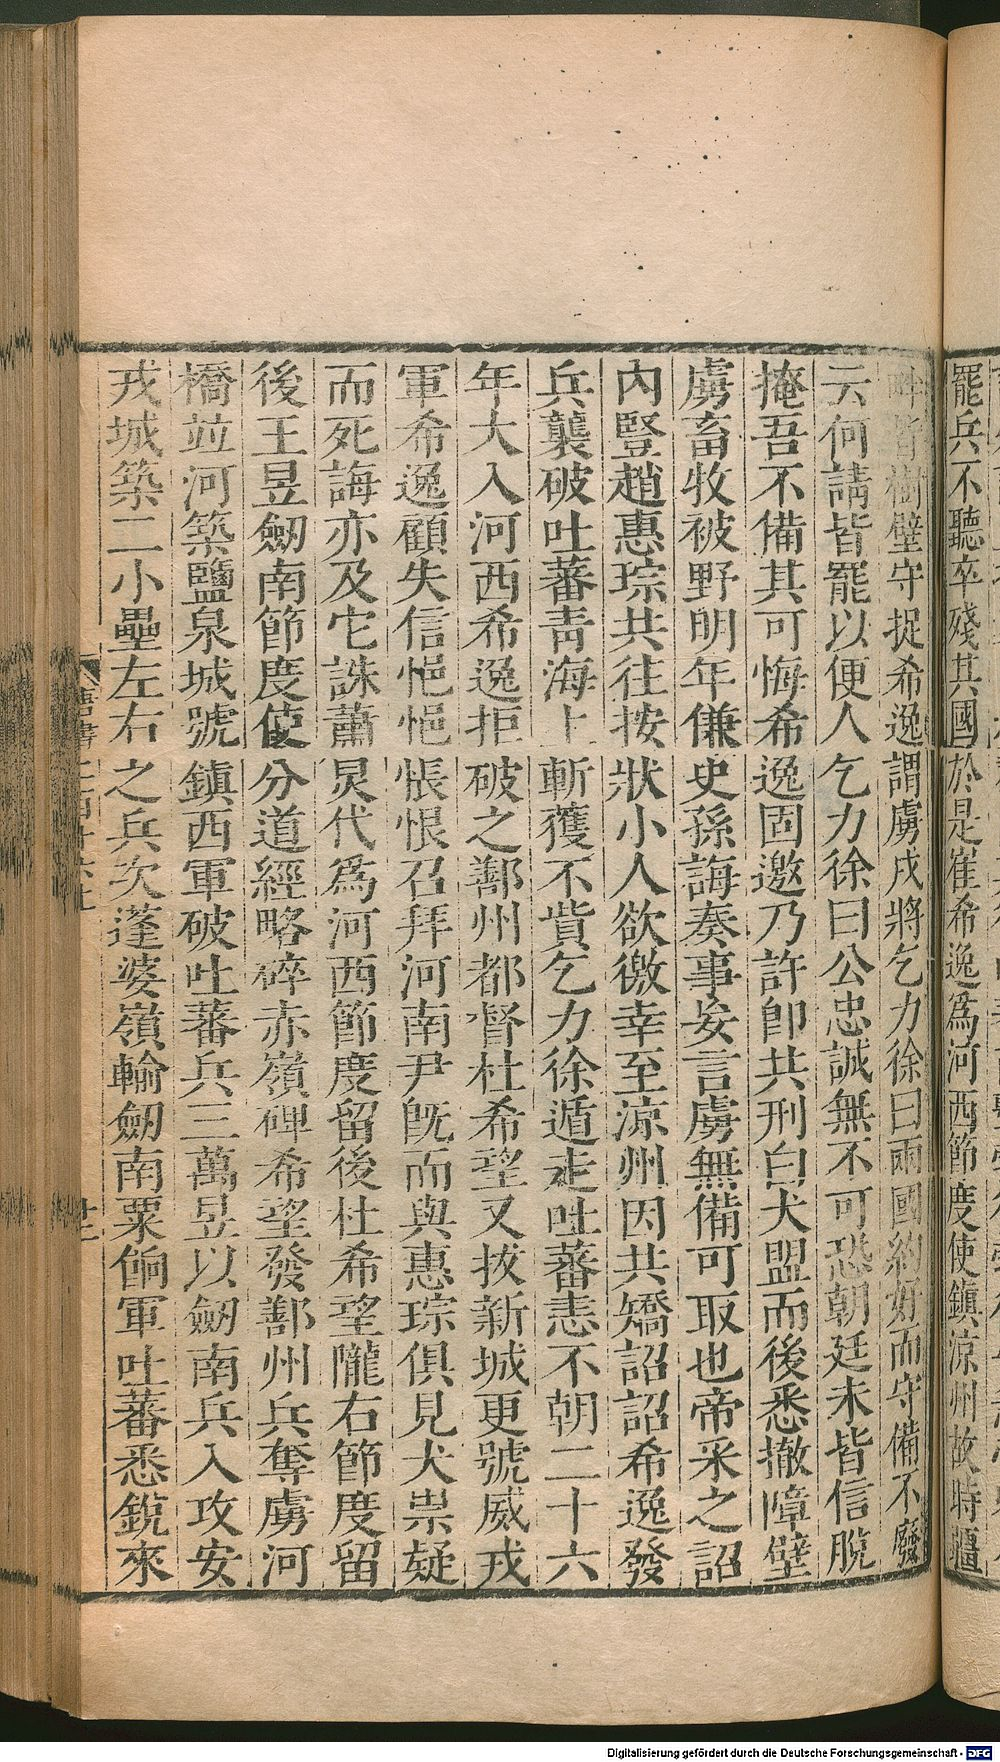 罷兵不聽卒殘其國於是崔希逸爲河西節度使鎮涼州故時疆
畔皆樹壁守捉希逸謂虜戍將乞力徐曰兩國約好而守備不廢
云何請皆罷以便人乞力徐曰公忠誠無不可恐朝廷未皆信脫
掩吾不備其可悔希逸固邀乃許卽共刑白犬盟而後悉撤障壁
虜畜牧被野明年傔史孫誨奏事妄言虜無備可取也帝采之詔
內豎趙惠琮共往按狀小人欲徼幸至涼州因共矯詔詔希逸發
兵襲破吐蕃靑海上斬獲不貲乞力徐遁走吐蕃恚不朝二十六
年大入河西希逸拒破之鄯州都督杜希望又拔新城更號威戎
軍希逸顧失信悒悒悵恨召拜河南尹旣而與惠琮俱見犬祟疑
而死誨亦及它誅蕭炅代爲河西節度留後杜希望隴右節度留
後王昱劒南節度使分道經略碎赤嶺碑希望發鄯州兵奪虜河
橋並河築鹽泉城號鎮西軍破吐蕃兵三萬昱以劒南兵入攻安
戎城築二小壘左右之兵次蓬婆嶺輸劒南粟餉軍吐蕃悉銳來
唐書
Digitalisierung gefördert durch die Deutsche Forschungsgemeinschaft - DFG